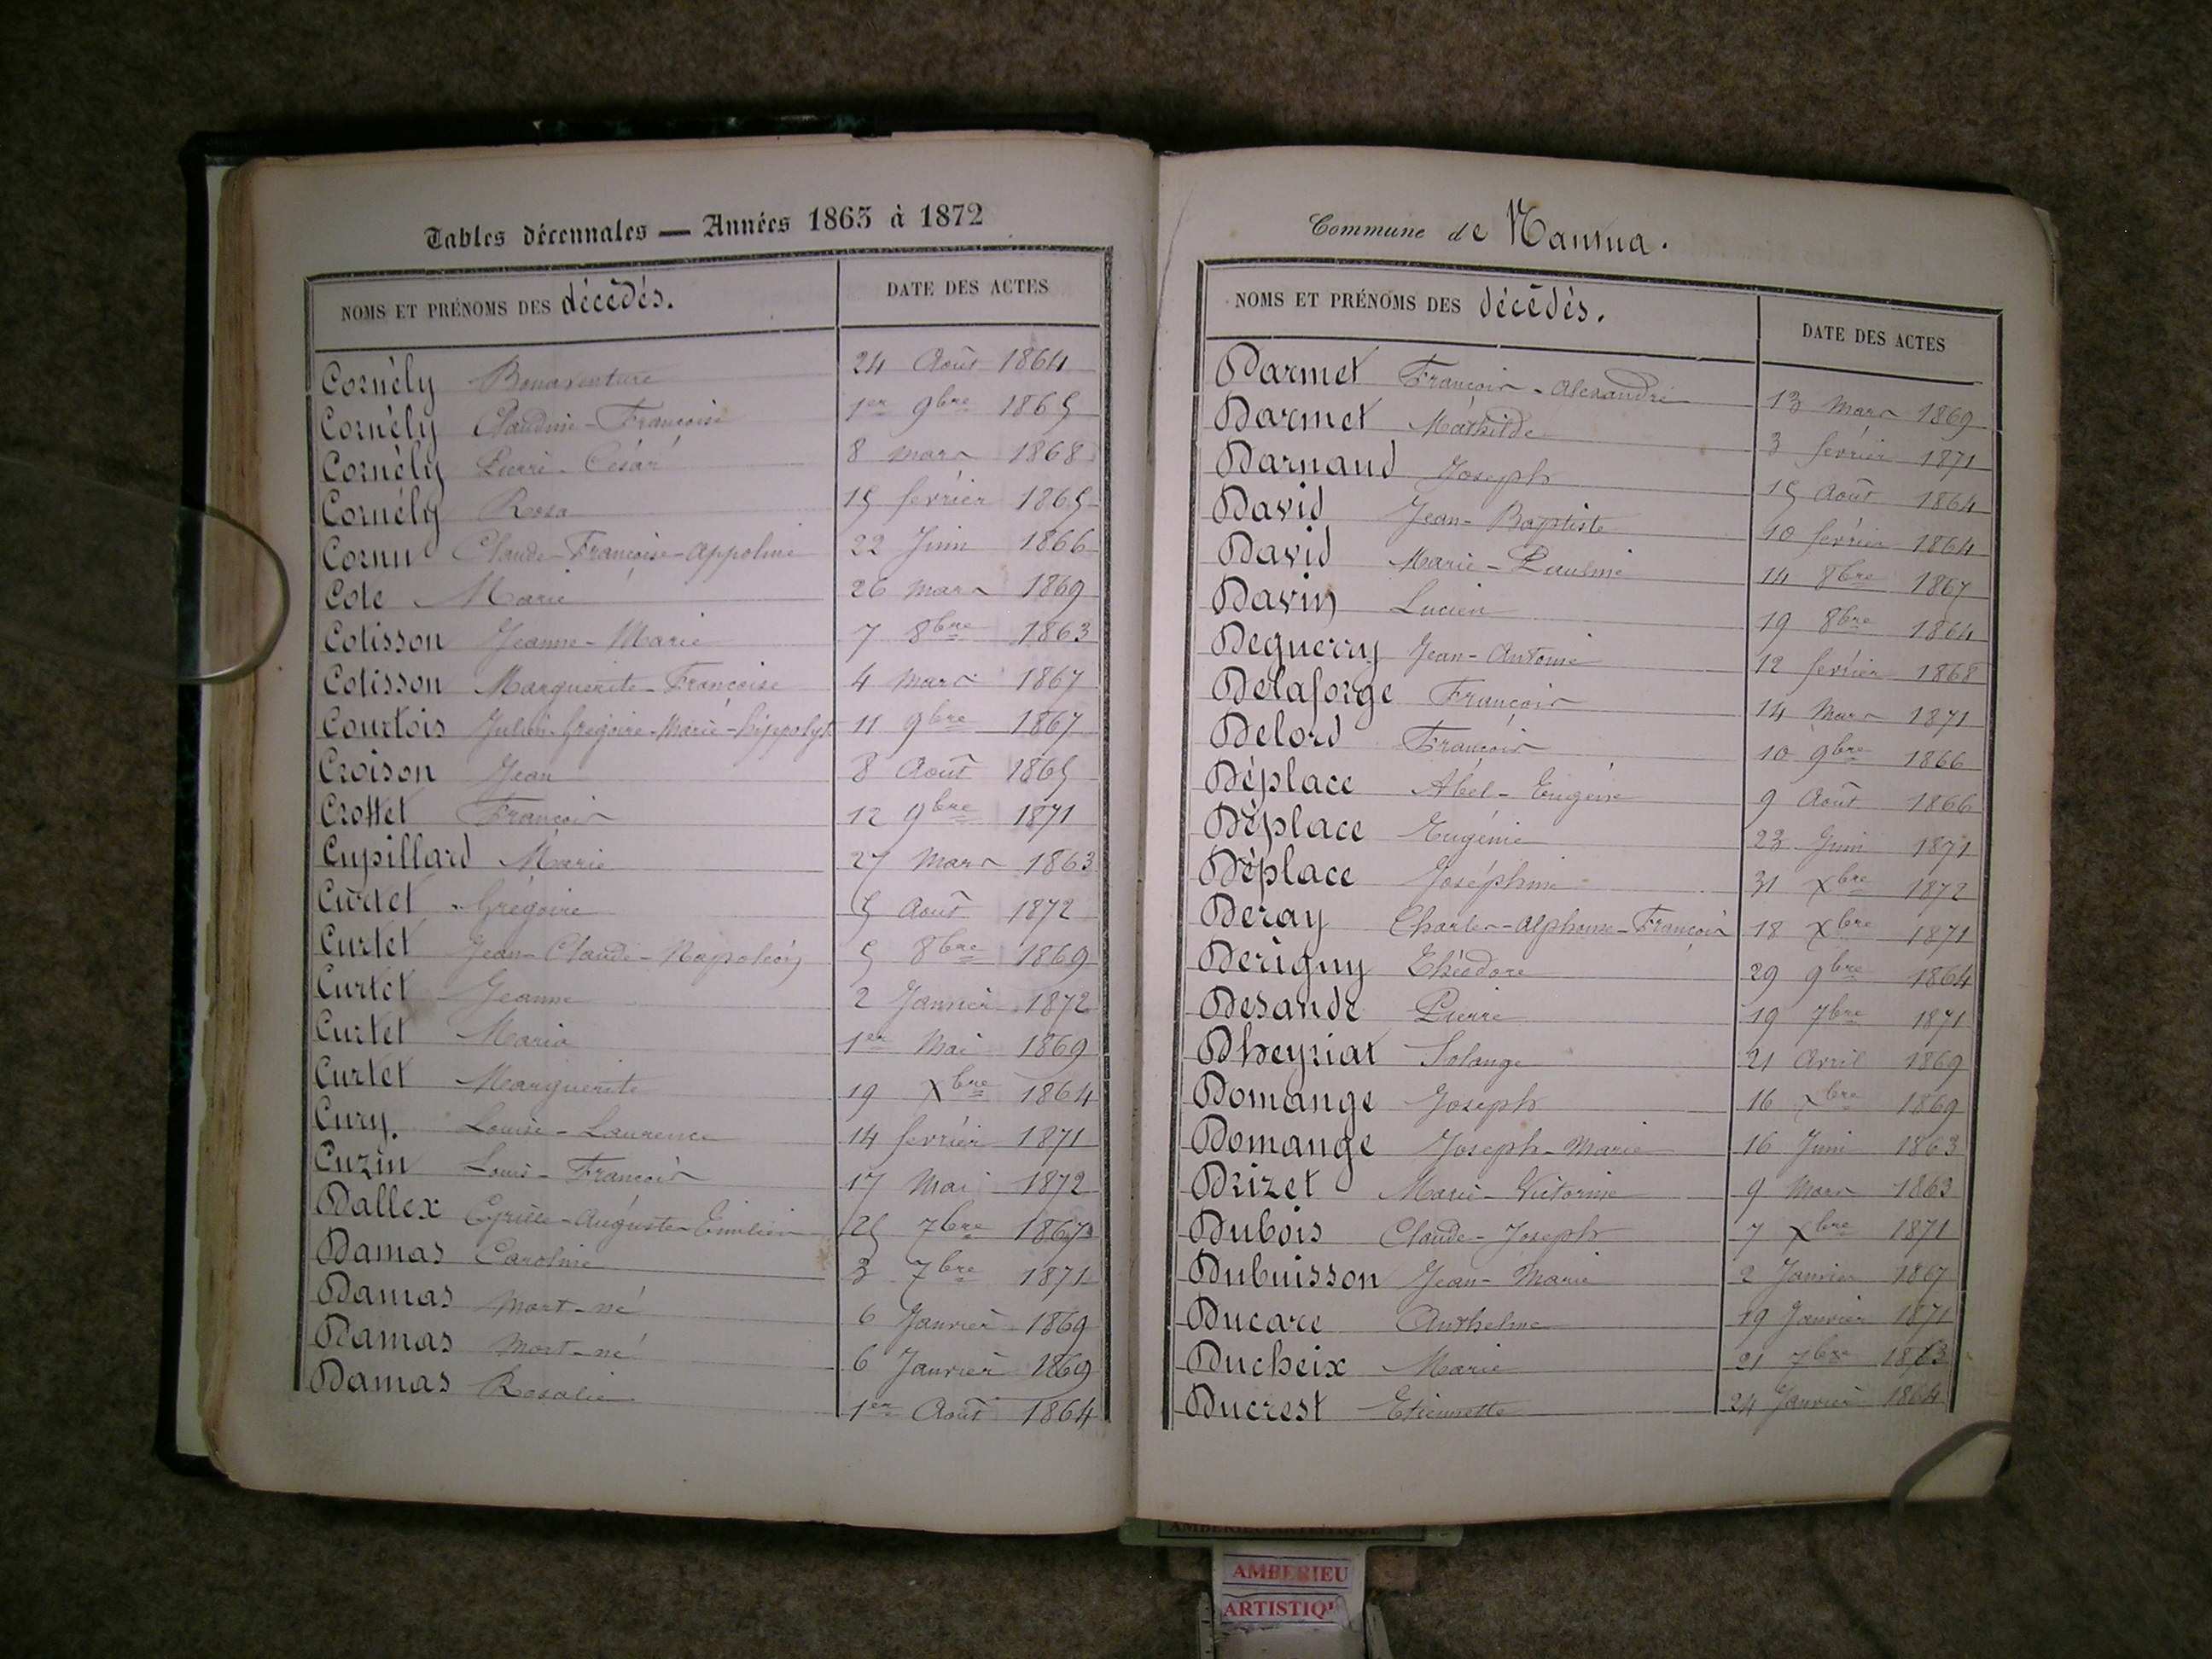 Tables décennales — Années 1863 à 1872
NOMS ET PRÉNOMS DES décédés. DATE DES ACTES
Cornély Bonaventure 24 Août 1864
Cornély Claudine-Françoise 1er 9bre 1865
Cornély Pierre-César 8 mars 1868
Cornély Rosa 15 février 1865
Cornu Claude-Françoise-Appoline 22 Juin 1866
Cote Marie 26 mars 1869
Cotisson Jeanne-Marie 7 8bre 1863
Cotisson Marguerite-Françoise 4 mars 1867
Courtois Julien-Grégoire-Marie-hippolyte 11 9bre 1867
Croison Jean 8 Août 1865
Crottet François 12 9bre 1871
Cupillard Marie 27 Mars 1863
Curtet Grégoire 5 Août 1872
Curtet Jean-Claude-Napoléon 5 8bre 1869
Curtet Jeanne 2 Janvier 1872
Curtet Maria 1er Mai 1869
Curtet Marguerite 19 Xbre 1864
Cury. Louise-Laurence 14 février 1871
Cuzin Louis-François 17 Mai 1872
Dallex Cyrille-Auguste-Emilien 25 7bre 1867
Damas Caroline 3 7bre 1871
Damas Mort-né 6 Janvier 1869
Damas Mort-né 6 Janvier 1869
Damas Rosalie 1er Août 1864
Commune de Nantua.
NOMS ET PRÉNOMS DES décédés. DATE DES ACTES
Darmet François-Alexandre 13 mars 1869
Darmet Mathilde 3 février 1871
Darnaud Joseph 15 Août 1864
David Jean-Baptiste 10 février 1864
David Marie-Pauline 14 8bre 1867
Davin Lucien 19 8bre 1864
Deguerry Jean-Antoine 12 février 1868
Delaforge François 14 Mars 1871
Delord François 10 9bre 1866
Déplace Abel-Eugène 9 Août 1866
Déplace Eugénie 23 Juin 1871
Déplace Joséphine 31 Xbre 1872
Deray Charles-Alphonse-François 18 Xbre 1871
Derigny Théodore 29 9bre 1864
Desande Pierre 19 7bre 1871
Dheyriat Solange 21 Avril 1869
Domange Joseph 16 Xbre 1869
Domange Joseph-Marie 16 Juin 1863
Drizet Marie-Victorine 9 Mars 1863
Dubois Claude-Joseph 7 Xbre 1871
Dubuisson Jean-Marie 2 Janvier 1867
Ducare Anthelme 19 Janvier 1871
Ducheix Marie 21 7bre 1863
Ducrest Etiennette 24 Janvier 1864
AMBERIEU ARTISTIQUE
AMBERIEU
ARTISTIQU